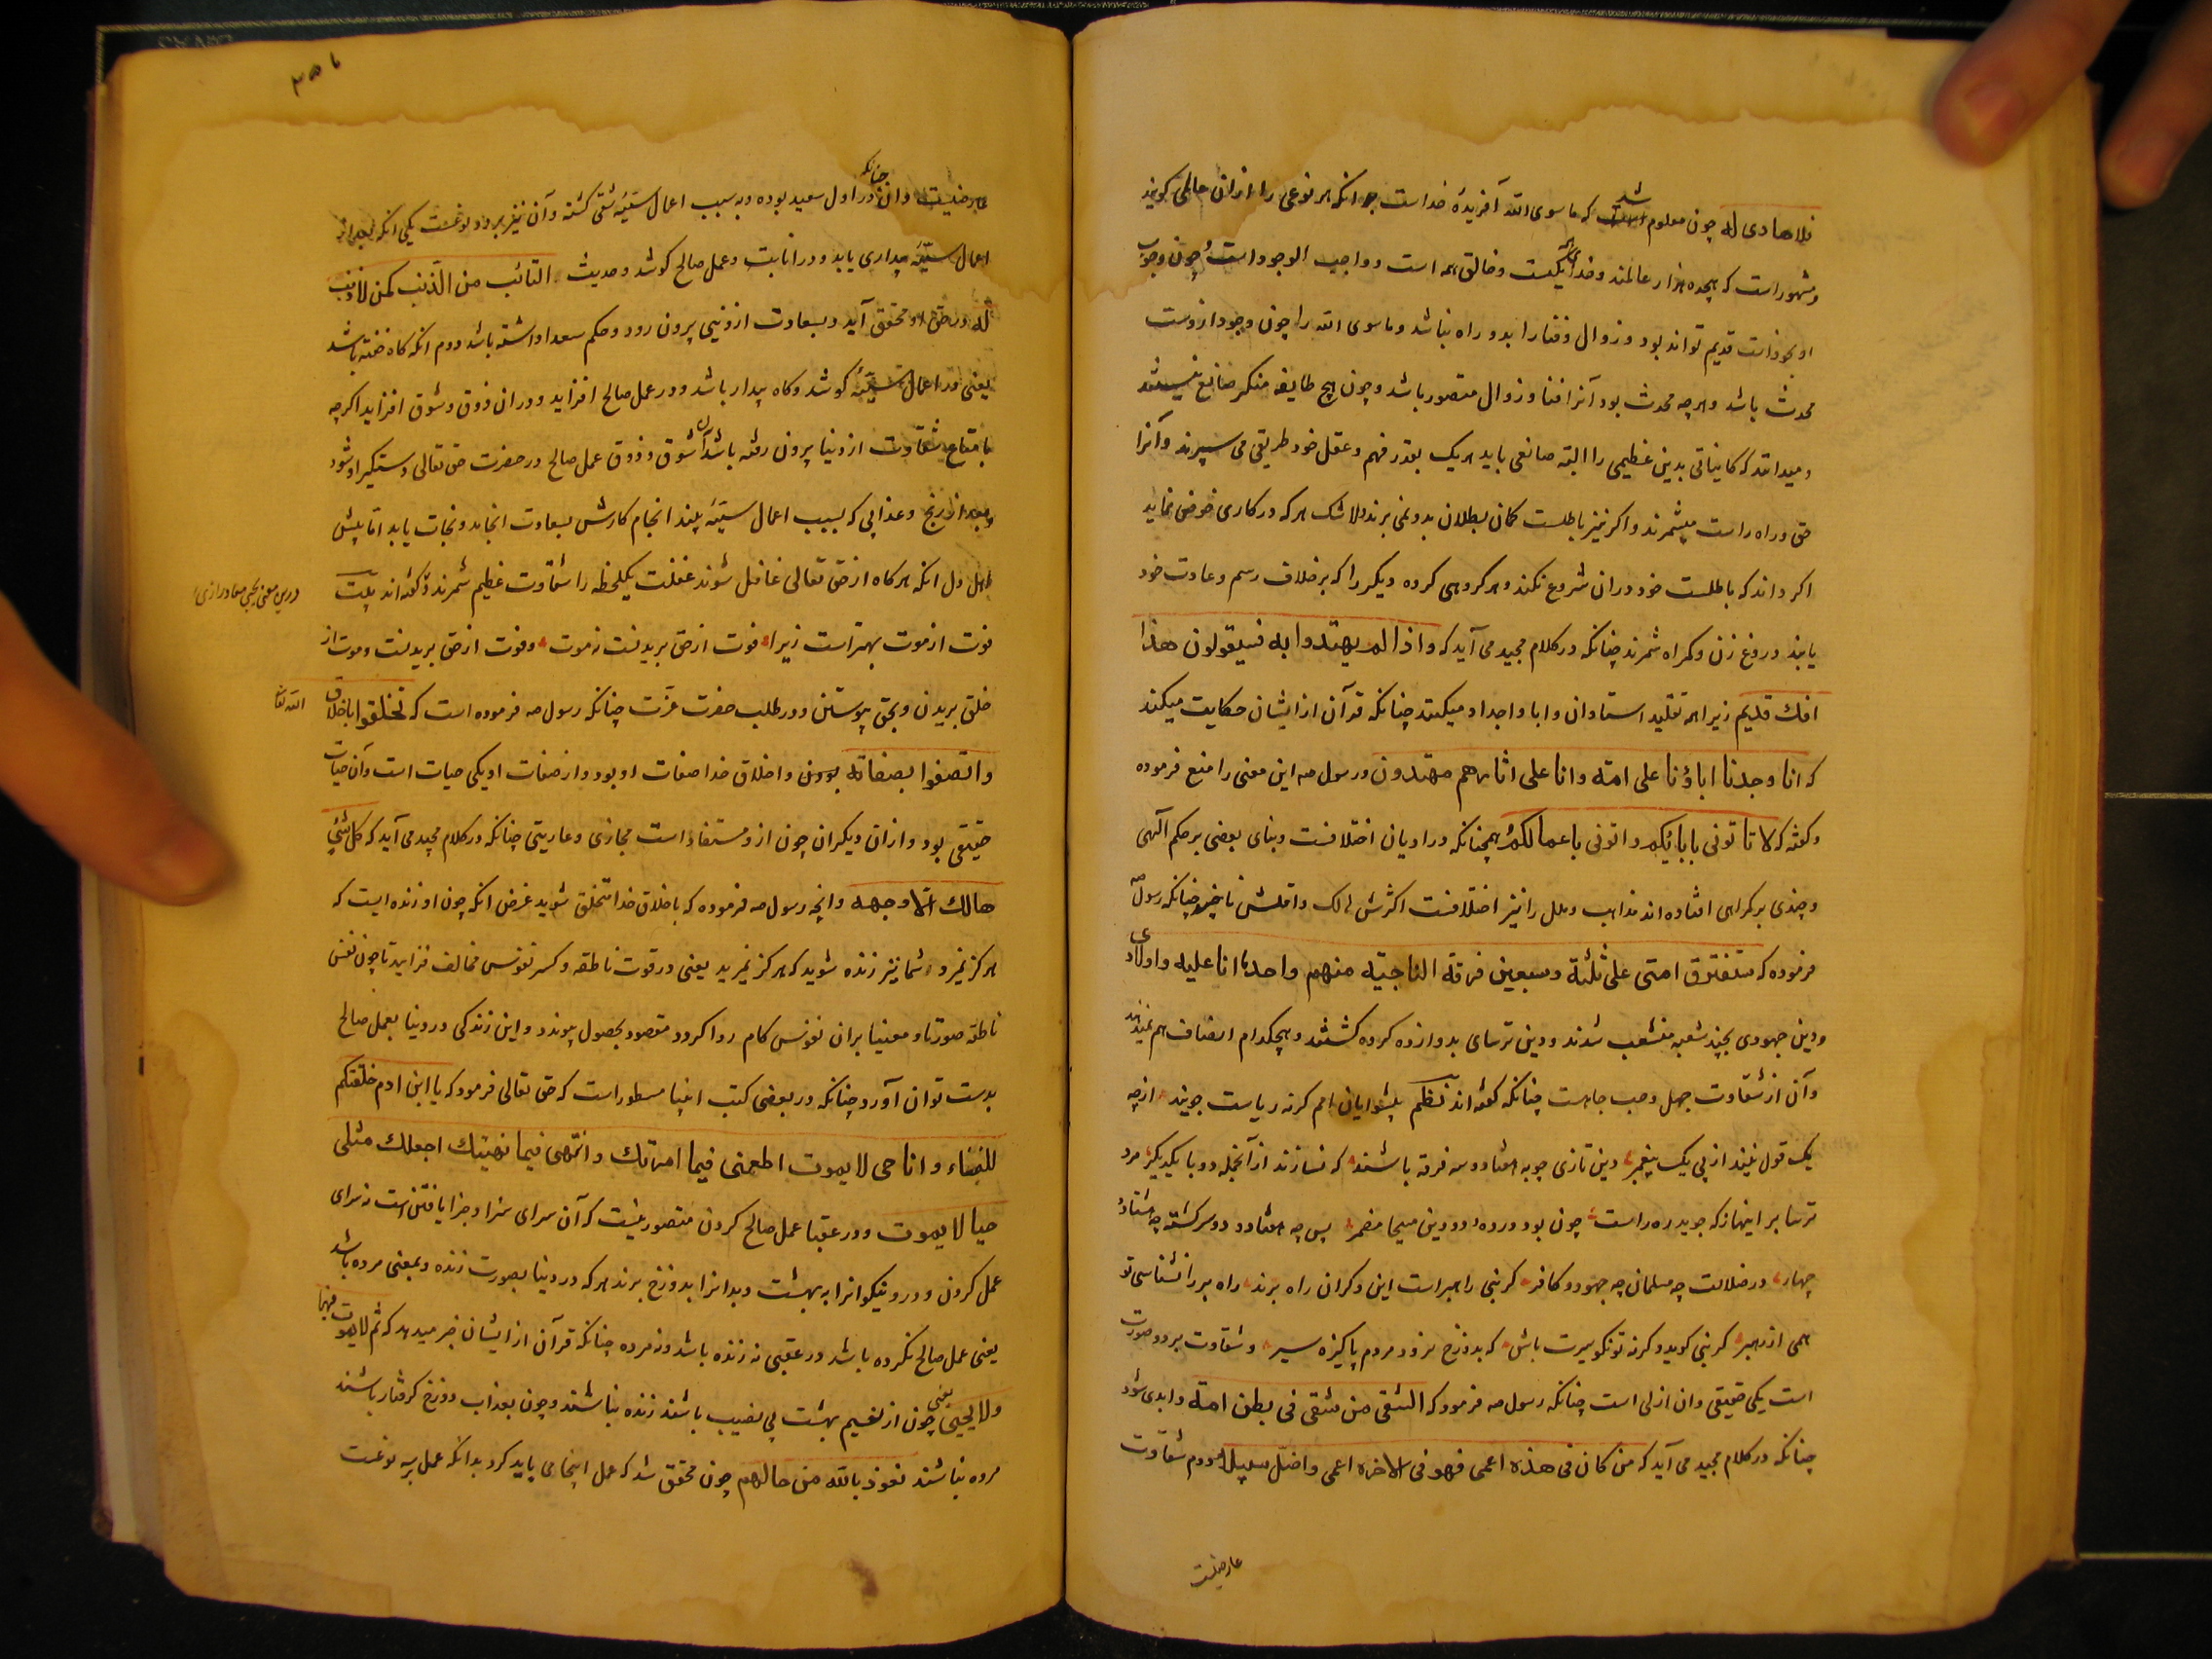 فلا هادی له چون معلوم شد که ما سوی الله آفریدهٔ خداست هر نوعی را ازان عالمی کویند
و مشهور است که هجده هزار عالمند و خدای یکیست و خالق همه است و واجب الوجود است چون وجوب
او بخود است قدیم تواند بود و زوال و فنا را بدو راه نباشد و ما سوی الله را چون وجود ازوست
محدث باشد و هرچه محدث بود آنرا فنا و زوال متصور باشد و چون هیچ طایفه منکر صانع نیستند
و میدانند که کایناتی بدین عظیمی را البته صانعی باید هر یک بقدر فهم و عقل خود طریقی می سپرند و آنرا
حق و راه راست میشمرند و اکر نیز باطلست کمان بطلان بدو نمی برند و لا شک هر که در کاری خوض نماید
اکر داند که باطلست خود دران شروع نکند و هر کروهی کروه دیکر را که بر خلاف رسم و عادت خود
یابند دروغ زن و کمراه شمرند چنانکه در کلام مجید می آید که و اذ الم یهتدوا به فسیقولون هذا
افك قدیم زیرا همه تقلید استادان و ابا و اجداد میکنند چنانکه قرآن از ایشان حکایت میکند
که انا وجدنا اباؤنا علی امته وانا علی اثارهم مقتدون و رسول صه این معنی را منع فرموده
و کفته که لا تاتونی بابائیکم و اتونی باعمالکم همچنانکه در ادیان اختلافست و بنای بعضی بر حکم آلهی
و چندی بر کمراهی افتاده اند مذاهب و ملل را نیز اختلافست اکثرش هالک و اقلش ناجی چنانکه رسول صه
فرموده که ستفترق امتی علی ثلثة و سبعین فرقه الناجیه منهم واحدة انا علیه و اولادی
و دین جهودی بچند شعبه منشعب شدند و دین ترسای بدوازده کروه کشتند و هیچکدام انصاف هم نمیدهند
و آن از شقاوت جهل و حب جاهست چنانکه کفته اند نظم پیشوایان هم کرنه ریاست جویند از چه
یک قول نیند از پی یک پیغمبر دین تازی چو به هفتاد و سه فرقه باشند که نسازند از آنجمله دو با یکدیکر مرد
ترسا بر اینها ز که جوید ره راست چون بود ورده دو دین مسیحا مضمر پس چه هفتاد و دو سرکشته چه هشتاد و
چهار در ضلالت چه مسلمان چه جهود و کافر کر نبی راهبر است این دکران راه برند راه بر را نشناسی تو
همی از رهبر کر نبی کوید و کرنه تو نکو سیرت باش که بدوزخ نرود مردم پاکیزه سیر و شقاوت بر دو صورت
است یکی حقیقی و ان ازلی است چنانکه رسول صه فرمود که الشقی من شقی فی بطن امه و ابدی شود
چنانکه در کلام مجید می آید که من کان فی هذه اعمی فهو فی الاخره اعمی و اضل سبیلا دوم شقاوت
عارضیست
عارضیست و ان چنانکه در اول سعید بوده و به سبب اعمال سیئه شقی کشته و آن نیز بر دو نوعست یکی انکه بعد از
اعمال سیئه بیداری یابد و در انابت و عمل صالح کوشد و حدیث التائب من الذنب کمن لا ذنب
له در حق او محقق آید و بسعادت از دنیی بیرون رود و حکم سعدا داشته باشد دوم انکه کاه خفته باشد
یعنی در اعمال سیئه کوشد و کاه بیدار باشد و در عمل صالح افزاید و دران ذوق و شوق افزاید اکرچه
با متاع شقاوت از دنیا بیرون رفته باشد آن شوق و ذوق عمل صالح در حضرت حق تعالی دستکیر او شود
و بعد از رنج و عذابی که بسبب اعمال سیئه بیند انجام کارش بسعادت انجامد و نجات یابد اما پیش
اهل دل انکه هر کاه از حق تعالی غافل شوند غفلت یکلحظه را شقاوت عظیم شمرند و کفته اند بیت
در بی معنی یحیی معاد رازی
فوت از موت بهتر است زیرا فوت از حق بریدنست نه موت و فوت از حق بریدنست و موت از
خلق بریدن و بحق پیوستن و در طلب حضرت عزت چنانکه رسول صه فرموده است که تخلقوا باخلاق
الله تعالی
و اتصفوا بصفاته بودن و اخلاق خدا صفات او بود و از صفات او یکی حیات است و آن حیات
حقیقی بود و ازان دیکران چون ازو مستفاد است مجازی و عاریتی چنانکه در کلام مجید می آید که کل شیئ
هالك الا وجهه و انچه رسول صه فرموده که باخلاق خدا متخلق شوید غرض انکه چون او زنده ایست که
هرکز نمیرد شما نیز زنده شوید که هرکز نمیرید یعنی در قوت ناطقه و کسر نفوس مخالف فزایید تا چون نفس
ناطقه صورتا و معنیا بران نفوس کام روا کردد مقصود بحصول پیوندد و این زندکی در دنیا بعمل صالح
بدست توان آورد چنانکه در بعضی کتب انبیا مسطور است که حق تعالی فرمود که یا ابن ادم خلقتکم
للبقاء و انا حی لا یموت اطعنی فیما امرتك و انتهی فیما نهیتك اجعلك مثلی
حیا لا یموت و در عقبا عمل صالح کردن متصور نیست که آن سرای سزا و جزا یافتن است نه سرای
عمل کردن و درو نیکوانرا به بهشت و بدانرا بدوزخ برند هر که در دنیا بصورت زنده و بمعنی مرده باشد
یعنی عمل صالح نکرده باشد در عقبی نه زنده باشد و نه مرده چنانکه قرآن از ایشان خبر میدهد که ثم لا یموت فیها
ولا یحیی یعنی چون از نعیم بهشت بی نصیب باشند زنده نباشند و چون بعذاب دوزخ کرفتار باشند
مرده نباشند نعوذ بالله من حالهم چون محقق شد که عمل اینجا می باید کرد بدانکه عمل بر سه نوعست